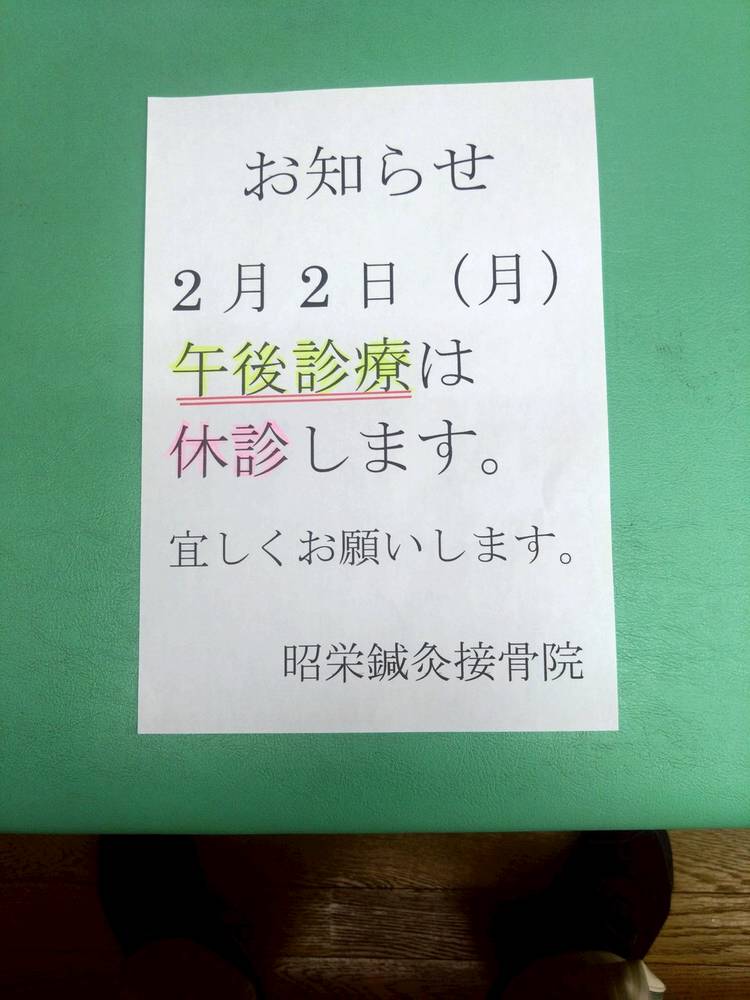 お知らせ
2月2日（月）
午後診療は
休診します。
宜しくお願いします。
昭栄鍼灸接骨院